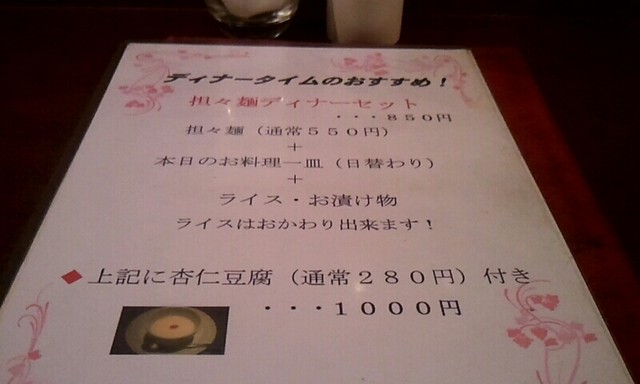 ディナータイムのおすすめ！
担々麺ディナーセット
・・・８５０円
担々麺（通常５５０円）
＋
本日のお料理一皿（日替わり）
＋
ライス・お漬け物
ライスはおかわり出来ます！
◆上記に杏仁豆腐（通常２８０円）付き
・・・１０００円